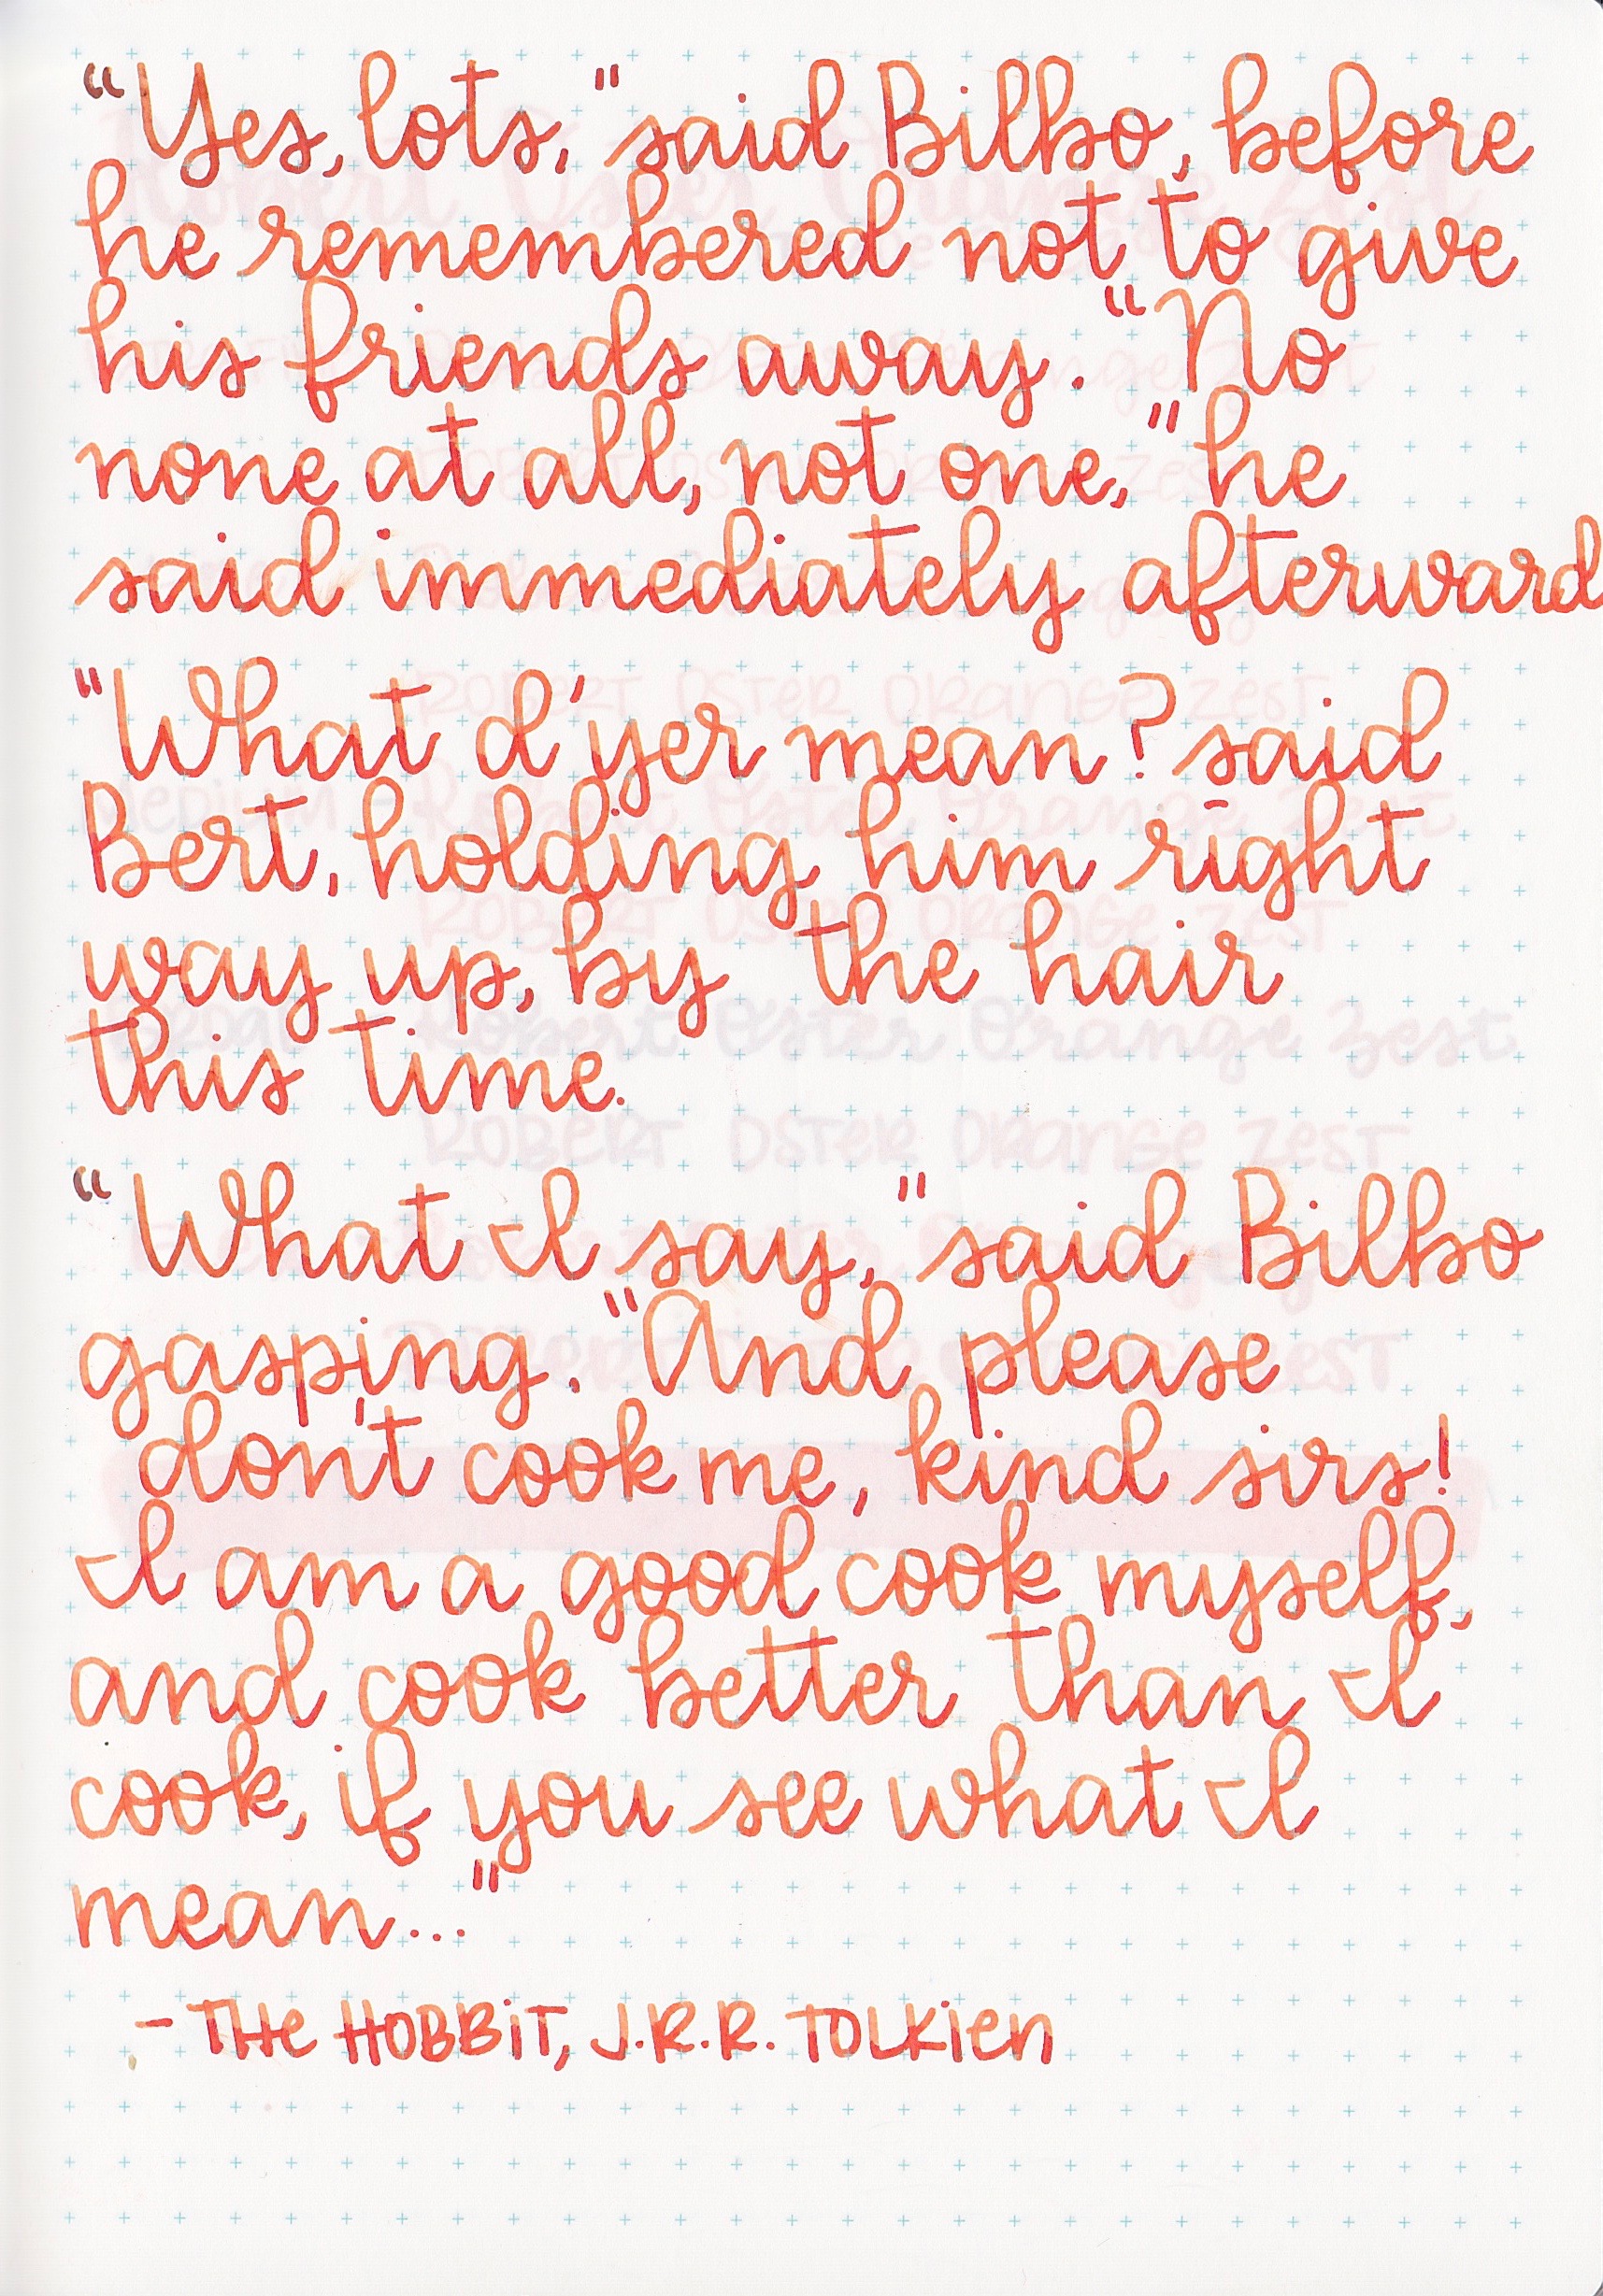 “Yes, lots," said Bilbo, before
he remembered not to give
his friends away. “No
none at all, not one," he
said immediately afterward
"What d'yer mean? said
Bert, holding him right
way up, by the hair
this time.
“What I say," said Bilbo
gasping. "And please
don't cook me, kind sirs!
I am a good cook myself,
and cook better than I
cook, if you see what I
mean..."
- THe HOBBiT, J.R.R. TOLKien